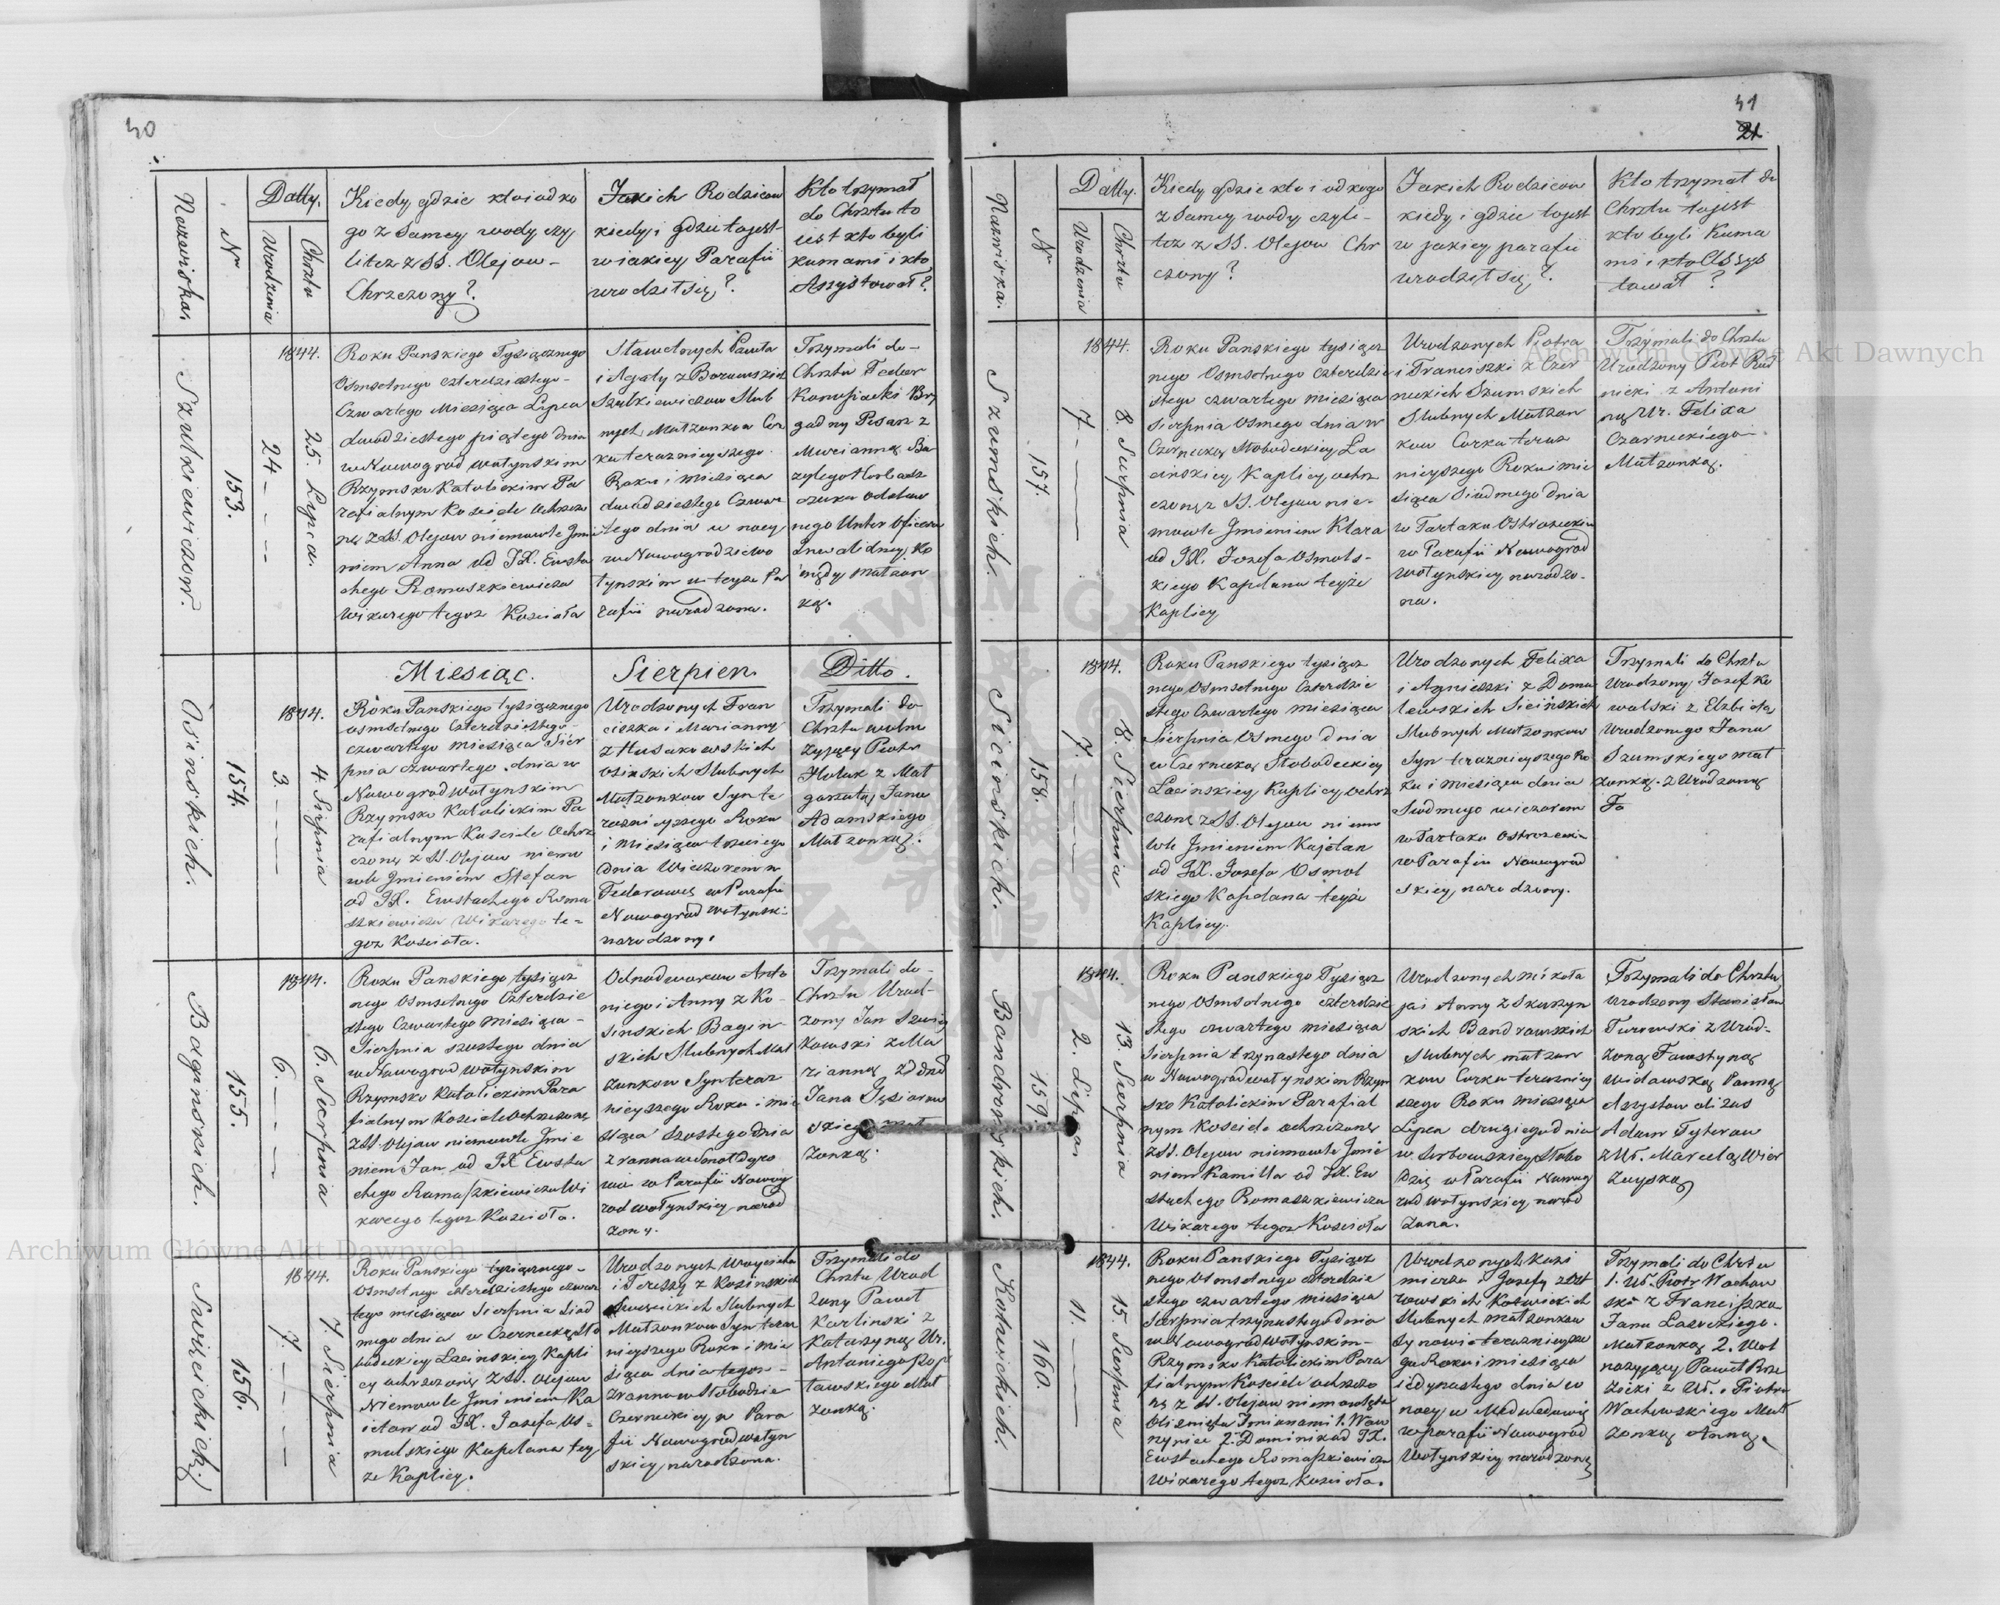 40
Nazwiska.
Nr
Datty.
Urodzenia
Chrztu
Kiedy gdzie kto i od ko
go z Samey wody czy
litez z SS. Olejow
Chrzczony?
Jakich Rodzicow
kiedy i gdzie to jest
w iakiey Parafii
urodził się?
Kto trzymał
do Chrztu to
iest kto byli
kumami i kto
Asystował?
Szulkiewiczow.
153.
24
25. Lipca.
1844.
Roku Panskiego Tysiącznego
Osmsetnego czterdziestego
Czwartego Miesiąca Lipca
dwudziestego piątego dnia
w Nowogrod wołynskim
Rzymsko Katolickim Pa
rafialnym Kosciele Ochrzczo
ną z SS. Olejow niemowle Jmie
niem Anna od JX. Eusta
chego Romaszkiewicza
Wikarego tegoz Kosciola
Sławetnych Pawła
i Agaty z Borowskich
Szulkiewiczow Slub
nych Małzonkow Cor
ka teraznieyszego
Roku i miesiąca
dwudziestego Czwar
tego dnia w nocy
w Nowogrodziewo
łynskim w teyze Pa
rafii narodzona.
Trzymali do
Chrztu Fedor
Konofiacki Bry
gadny Pisarz z
Marcianną Ba
zylego Horbacz
czuka Odstaw
nego Unter Oficera
Inwalidney Ko
mędy małzon
ką.
Miesiąc. Sierpien. Ditto.
Osinskich.
154.
3.
4. Sierpnia
1844.
Roku Panskiego tysiącznego
osmsetnego Czterdziestego
czwartego miesiąca Sier
pnia czwartego dnia w
Nowogrod wołynskim
Rzymsko Katolickim Pa
rafialnym Kosciele Ochrz
czony z SS. Olejow niemo
wle Jmieniem Stefan
od JX. Eustachego Roma
szkiewicza Wikarego te=
goz Kosciola.
Urodzonych Fran
ciszka i Marianny
z Husakowskich
Osinskich Slubnych
Małzonkow Syn te
raznieyszego Roku
i Miesiąca trzeciego
dnia Wieczorem w
Fedorowce w Parafii
Nowogrod wołynski
narodzony.
Trzymali do
Chrztu wolno
zyjący Piotr
Holak z Mał
gorzatą Jana
Adamskiego
Małzonką.
Baginskich.
155.
6.
6. Sierpnia
1844.
Roku Panskiego tysiącz
nego Osmsetnego Czterdzie
stego Czwartego miesiąca
Sierpnia szostego dnia
w Nowogrod wołynskim
Rzymsko Katolickim Para
fialnym Kosciele Ochrzczony
z SS. Olejow niemowle Jmie
niem Jan od JX Eusta
chego Romaszkiewicza Wi
karego tegoz Kosciola.
Odnodworcow Anto
niego i Anny z Ko
sinskich Bagin
skich Slubnych Mał
zonkow Syn teraz
nieyszego Roku i mie
siąca szostego dnia
z ranna w Smołdyro
wie w Parafii Nowog
rod wołynskiey narod
zony.
Trzymali do
Chrztu Urod
zony Jan Szwiy
kowski z Ma
rianną
Jana Gąsiorow
skiego mał
zonką.
Swięcickich
156.
7.
7. Sierpnia
1844.
Roku Panskiego tysiącznego
Osmsetnego czterdziestego czwar
tego miesiąca Sierpnia siod
mego dnia w Czerneckosło
bodeckiey Łacinskiey Kapli
cy ochrzczony z SS. Olejow
Niemowle Jmieniem Ka
ietan od JX. Jozefa Os
molskiego Kapłana tey
ze Kaplicy.
Urodzonych Woyciecha
i Tereszy z Kozinskich
Swięcickich Slubnych
Małzonkow Syn teraz
nieyszego Roku i mie
siąca dnia tegoz
z ranna w Słobodzie
Czerneckiey w Para
fii Nowogrod wołyn
skiey narodzona.
Trzymali do
Chrztu Urod
zony Paweł
Karlinski z
Katarzyną Ur.
Antoniego Pop
ławskiego Mał
zonką.
41
21
Nazwiska.
Nr
Datty.
Urodzenia
Chrztu
Kiedy gdzie kto i od kogo
z Samey wody czyli
tez z SS. Olejow Chr
czony?
Jakich Rodzicow
kiedy i gdzie to jest
w jakiey parafii
urodził się?
Kto trzymał do
Chrztu to jest
kto byli Kuma
mi i kto Assys
tował?
Szumskich.
157.
7
8. Sierpnia
1844.
Roku Panskiego tysiącz
nego Osmsetnego czterdzie
stego czwartego miesiąca
sierpnia osmego dnia w
Czernecko Słobodeckiey Ła
cinskiey Kaplicy ochrz
czona z SS. Olejow nie
mowle Jmieniem Klara
od JX. Jozefa Osmols
kiego Kapłana teyze
Kaplicy
Urodzonych Piotra
i Franciszki z Czer
neckich Szumskich
Slubnych Małzon
kow Corka teraz
nieyszego Roku i mie
siąca siodmego dnia
w Tartaku Ostrozeckim
w Parafii Nowogrod
wołynskiey narodzo
na.
Trzymali do Chrztu
Urodzony Piotr Rud
nicki z Antoni
ną Ur. Felixa
Czarneckiego
Małzonką.
Sicinskich.
158.
7.
8. Sierpnia
1844.
Roku Panskiego tysiącz
nego Osmsetnego Czterdzie
stego Czwartego miesiąca
Sierpnia Osmego dnia
w Czernecko Słobodeckiey
Łacinskiey Kaplicy ochrz
czony z SS. Olejow niemo
wle Jmieniem Kajetan
od JX. Jozefa Osmol
skiego Kapłana teyze
Kaplicy.
Urodzonych Felixa
i Agnieszki z Doma
lewskich Sicinskich
Slubnych Małzonkow
Syn teraznieyszego Ro
ku i miesiąca dnia
Siodmego wieczorem
w Tartaku Ostrozecki
w Parafii Nowogrod
skiey narodzony.
Trzymali do Chrztu
Urodzony Jozef Ko
walski z Elzbietą
Urodzonego Jana
Szumskiego mał
zonką. z Urodzoną
Fo
Bandrowskich.
159.
2. Lipca
13 Sierpnia
1844.
Roku Panskiego Tysiącz
nego Osmsetnego czterdzie
stego czwartego miesiąca
Sierpnia trzynastego dnia
w Nowogrod wołynskim Rzym
sko Katolickim Parafial
nym Kosciele ochrzczona
z SS. Olejow niemowle Jmie
niem Kamilla od JX. Eu
stachego Romaszkiewicza
Wikarego tegoz Kosciola
Urodzonych Mikoła
ja i Anny z Skurzyn
skich Bandrowskich
Slubnych małzon
kow Corka terazniey
szego Roku miesiąca
Lipca drugiego dnia
w Sorbowskiey Słobo
dzie w Parafii Nowog
rod wołynskiey narod
zona.
Trzymali do Chrztu
Urodzony Stanisław
Turowski z Urod
zoną Faustyną
Widawską Panną
Asystowali zas
Adam Tyteraw
z Ur. Marcelą Wier
Kotwickich.
160.
11.
15. Sierpnia
1844.
Roku Panskiego Tysiącz
nego Osmsetnego czterdzie
stego czwartego miesiąca
Sierpnia trzynastego dnia
w Nowogrod wołynskim
Rzymsko Katolickim Para
fialnym Kosciele ochrzczo
ne z SS. Olejow niemowlęta
bliznięta Jmionami 1. Waw
rzyniec 2. Dominik od JX.
Eustachego Romaszkiewicza
Wikarego tegoz Kosciola.
Urodzonych Kazi
mierza i Jozefy z
rowskich Kotwickich
Slubnych małzonkow
Synowie teraznieysze
go Roku i miesiąca
iedynastego dnia w
nocy w Miedwedowie
w parafii Nowogrod
Wołynskiey narodzone
Trzymali do Chrztu
1. Ur. Piotr Wachow
ski z Franciszką
Jana Lasockiego
Małzonką 2. Wol
nozyjący Paweł Brze
zicki z Ur. Piotra
Wachowskiego Mał
zonką Anną.
Archiwum Główne Akt Dawnych
Archiwum Główne Akt Dawnych